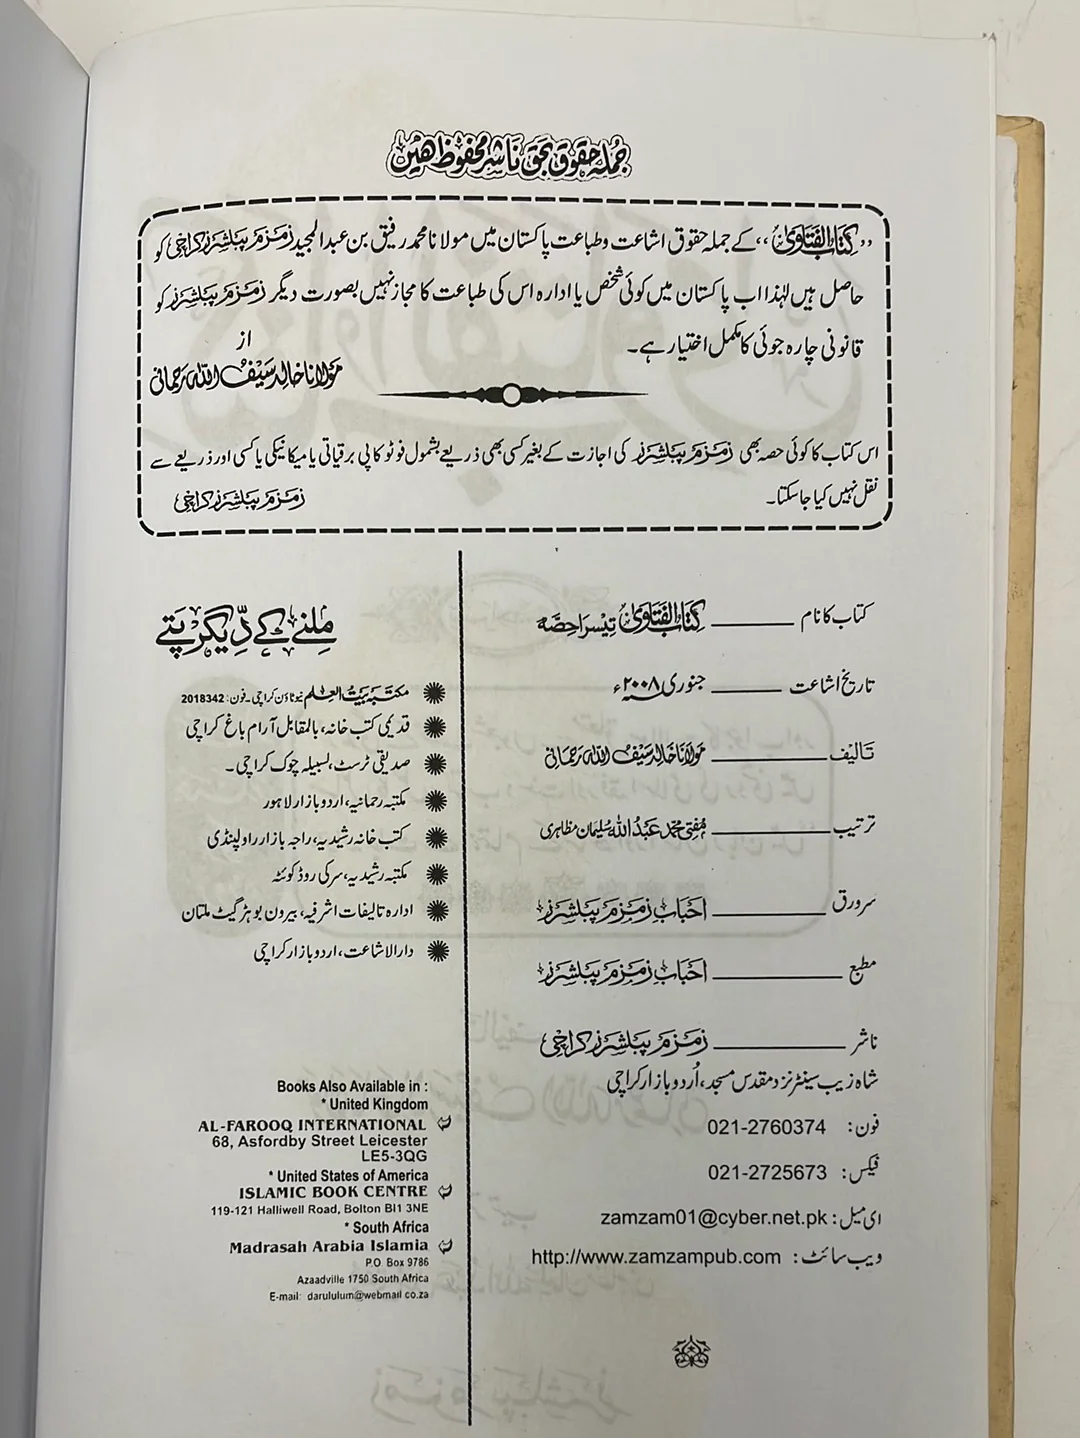 جملہ حقوق بحق ناشر محفوظ ھیں
”کتاب الفتاویٰ“ کے جملہ حقوق اشاعت و طباعت پاکستان میں مولانا محمد رفیق بن عبدالمجید زمزم پبلشرز کراچی کو
حاصل ہیں لہٰذا اب پاکستان میں کوئی شخص یا ادارہ اس کی طباعت کا مجاز نہیں بصورت دیگر زمزم پبلشرز کو
قانونی چارہ جوئی کا مکمل اختیار ہے۔
از
مولانا خالد سیف اللہ رحمانی
اس کتاب کا کوئی حصہ بھی زمزم پبلشرز کی اجازت کے بغیر کسی بھی ذریعے بشمول فوٹو کاپی برقیاتی یا میکانیکی یا کسی اور ذریعے سے
نقل نہیں کیا جا سکتا۔
زمزم پبلشرز کراچی
کتاب کا نام ــــــــ کتاب الفتاویٰ تیسرا حصہ
تاریخ اشاعت ــــــــ جنوری ۲۰۰۸ء
تالیف ــــــــ مولانا خالد سیف اللہ رحمانی
ترتیب ــــــــ مفتی محمد عبداللہ سلیمان مظاہری
سرورق ــــــــ احباب زمزم پبلشرز
مطبع ــــــــ احباب زمزم پبلشرز
ناشر ــــــــ زمزم پبلشرز کراچی
شاہ زیب سینٹر نزد مقدس مسجد، اُردو بازار کراچی
فون: 021-2760374
فیکس: 021-2725673
ای میل: zamzam01@cyber.net.pk
ویب سائٹ: http://www.zamzampub.com
ملنے کے دیگر پتے
مکتبہ بیت العلم نیوٹاؤن کراچی۔ فون: 2018342
قدیمی کتب خانہ، بالمقابل آرام باغ کراچی
صدیقی ٹرسٹ، لسبیلہ چوک کراچی۔
مکتبہ رحمانیہ، اردو بازار لاہور
کتب خانہ رشیدیہ، راجہ بازار راولپنڈی
مکتبہ رشیدیہ، سرکی روڈ کوئٹہ
ادارہ تالیفات اشرفیہ، بیرون بوہڑ گیٹ ملتان
دارالاشاعت، اردو بازار کراچی
Books Also Available in :
* United Kingdom
AL-FAROOQ INTERNATIONAL
68, Asfordby Street Leicester
LE5-3QG
* United States of America
ISLAMIC BOOK CENTRE
119-121 Halliwell Road, Bolton Bl1 3NE
* South Africa
Madrasah Arabia Islamia
P.O Box 9786
Azaadville 1750 South Africa
E-mail: darululum@webmail.co.za